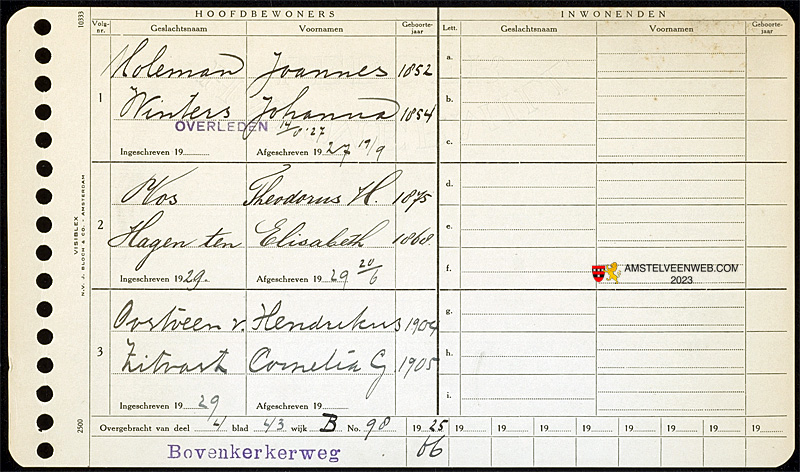 10333
HOOFDBEWONERS
INWONENDEN
Volg-nr.
Geslachtsnaam
Voornamen
Geboorte-jaar
Lett.
Geslachtsnaam
Voornamen
Geboorte-jaar
1
Holeman Joannes 1852
Winters Johanna 1854
OVERLEDEN
Ingeschreven 19
Afgeschreven 1927 19/9
2
Kos Theodorus H. 1875
Hagen ten Elisabeth 1868
Ingeschreven 1929.
Afgeschreven 1929 20/6
3
Oostveen v. Hendrikus 1904
Zitvast Cornelia G. 1905
Ingeschreven 1929
Afgeschreven 19
a.
b.
c.
d.
e.
f.
g.
h.
i.
AMSTELVEENWEB.COM
2023
VISIBLEX
N.V. J. BLOCH & CO. - AMSTERDAM
2500
Overgebracht van deel 4 blad 43 wijk B No. 98
1925 19 19 19 19 19 19 19 19
Bovenkerkerweg 66